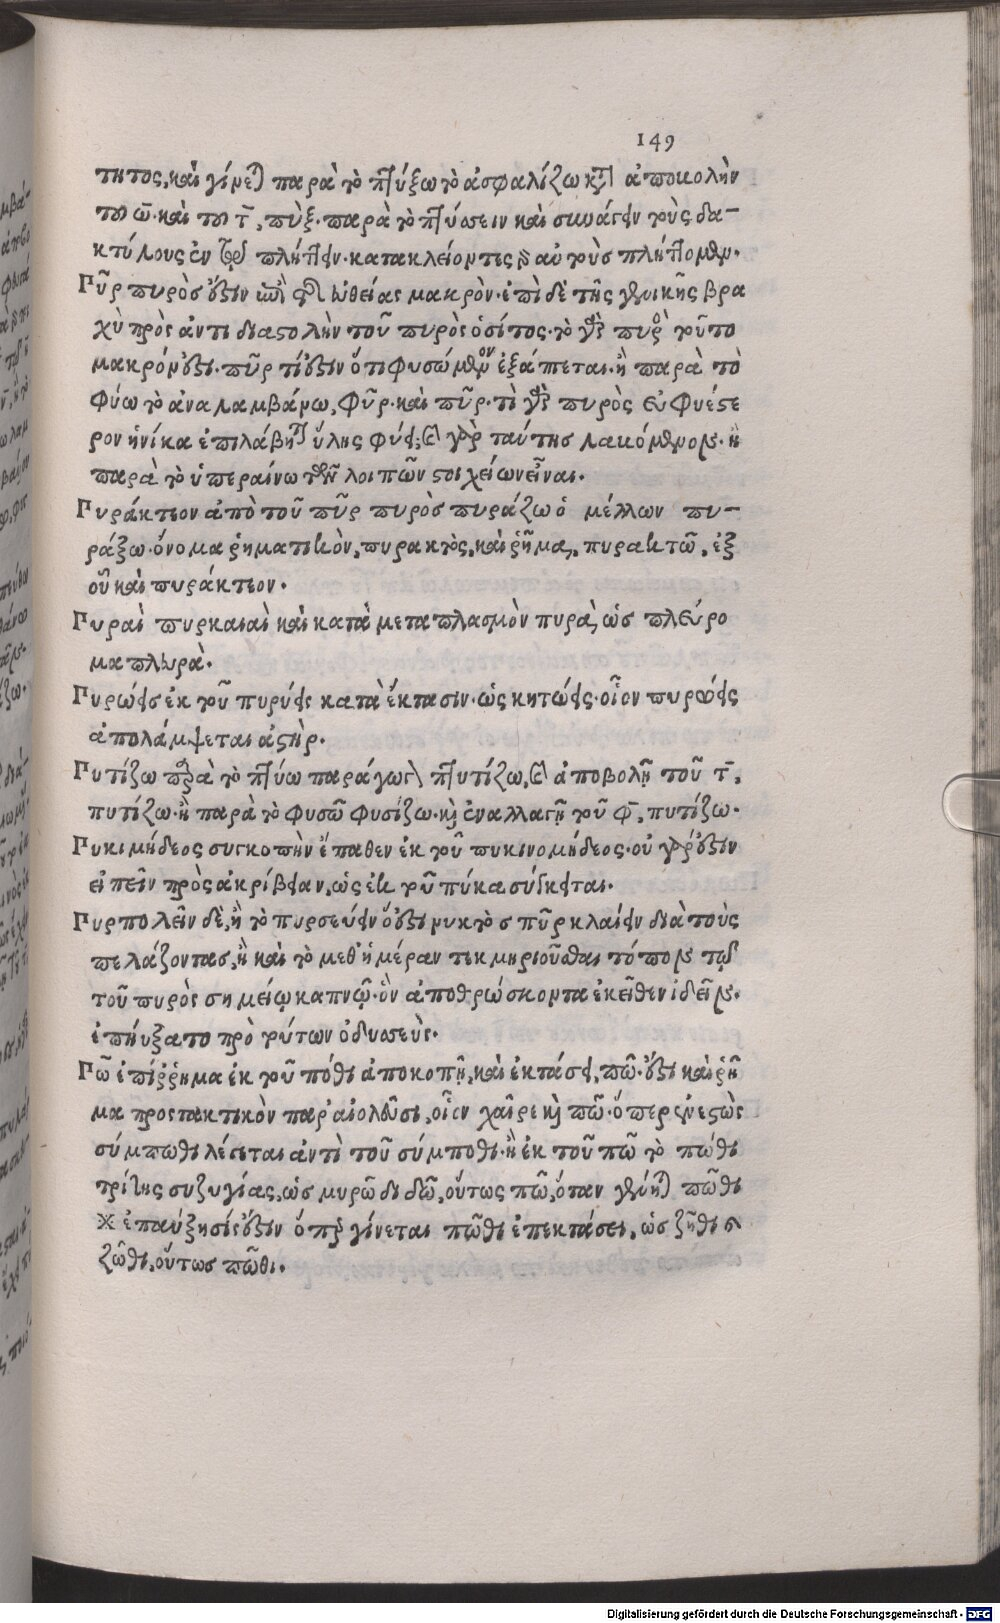 149
τητος, καὶ γίνεται παρὰ τὸ πτύξω τὸ ἀσφαλίζω κτ ἀποκολὴν
τοῦ ω̄· καὶ τοῦ τ̄, πὺξ. παρὰ τὸ πτύσσειν καὶ συνάγειν τοὺς δα-
κτύλους ἐν τῷ πλήττειν. κατακλείοντες γὰρ αὐτοὺς πλήττομεν.
Πῦρ πυρὸς ὅξιν ἐπὶ τῆς εὐθείας μακρὸν. ἐπὶ δὲ τῆς γενικῆς βρα
χὺ πρὸς ἀντιδιαστολὴν τοῦ πυρὸς ὁ σίτος. τὸ γὰρ πυρὸς τοῦτο
μακρόν ἐστι. πῦρ τί ἐστιν ὅτι φυσώμενον ἐξάπτεται. ἢ παρὰ τὸ
φύω τὸ ἀναλαμβάνω, φῦρ. καὶ πῦρ. τί γὰρ πυρὸς εὐφυέστε
ρον ἡνίκα ἐπιλάβηται ὕλης φύει; ἐκ γὰρ ταύτης λακόμενον. ἢ
παρὰ τὸ ὑπεραίνω τῶν λοιπῶν στοιχείων εἶναι.
Πυράκτεον ἀπὸ τοῦ πῦρ πυρὸς πυράζω ὁ μέλλων πυ-
ράξω. ὄνομα ῥηματικὸν, πυρακτὸς, καὶ ῥῆμα, πυρακτῶ, ἐξ
οὗ καὶ πυράκτεον.
Πυραὶ πυρκαιαὶ καὶ κατὰ μεταπλασμὸν πυρὰ, ὡς πλεύρο
μα πλευρὰ.
Πυρώεις ἐκ τοῦ πυρύεις κατὰ ἔκτασιν. ὡς κητώεις. οἷον πυρώεις
ἀπολάμψεται ἀστὴρ.
Πυτίζω παρὰ τὸ πτύω παράγωγον πτυτίζω, καὶ ἀποβολῇ τοῦ τ̄,
πυτίζω. ἢ παρὰ τὸ φυσῶ φυσίζω. καὶ ἐναλλαγῇ τοῦ φ̄, πυτίζω.
Πυκιμήδεος συγκοπὴν ἔπαθεν ἐκ τοῦ πυκινομήδεος. οὐ γὰρ ἔστιν
εἰπεῖν πρὸς ἀκρίβειαν, ὡς ἐκ τοῦ πύκα σύγκειται.
Πυρπολεῖν δὲ, ἢ τὸ πυρσεύειν ὅ ἐστι νυκτὸς πῦρ καίειν διὰ τοὺς
πελάζοντας, ἢ καὶ τὸ μεθ' ἡμέραν τεκμηριοῦσθαι τόπον τῷ
τοῦ πυρὸς σημείῳ καπνῷ. ὃν ἀποθρώσκοντα ἐκεῖθεν ἰδεῖν.
ἐπήυξατο πρὸ τούτων ὀδυσσεὺς.
Πῶ ἐπίῤῥημα ἐκ τοῦ πόθι ἀποκοπῇ, καὶ ἐκτάσει, πῶ. ἔστι καὶ ῥῆ
μα προστακτικὸν παρ' αἰολεῦσι, οἷον χαῖρε καὶ πῶ. ὅπερ ἐνεστὼς
σύμπωθι λέγεται ἀντὶ τοῦ σύμποθι. ἢ ἐκ τοῦ πῶ τὸ πώθι
τρίτης συζυγίας, ὡς μυρῶ διδῶ, οὕτως πῶ, ὅταν γένηται πῶθι
※ ἐπαύξησίς ἐστιν ὅπερ γίνεται πῶθι ἐπεκτάσει, ὡς ζῆθι καὶ
ζῶθι, οὕτως πῶθι.
Digitalisierung gefördert durch die Deutsche Forschungsgemeinschaft - DFG